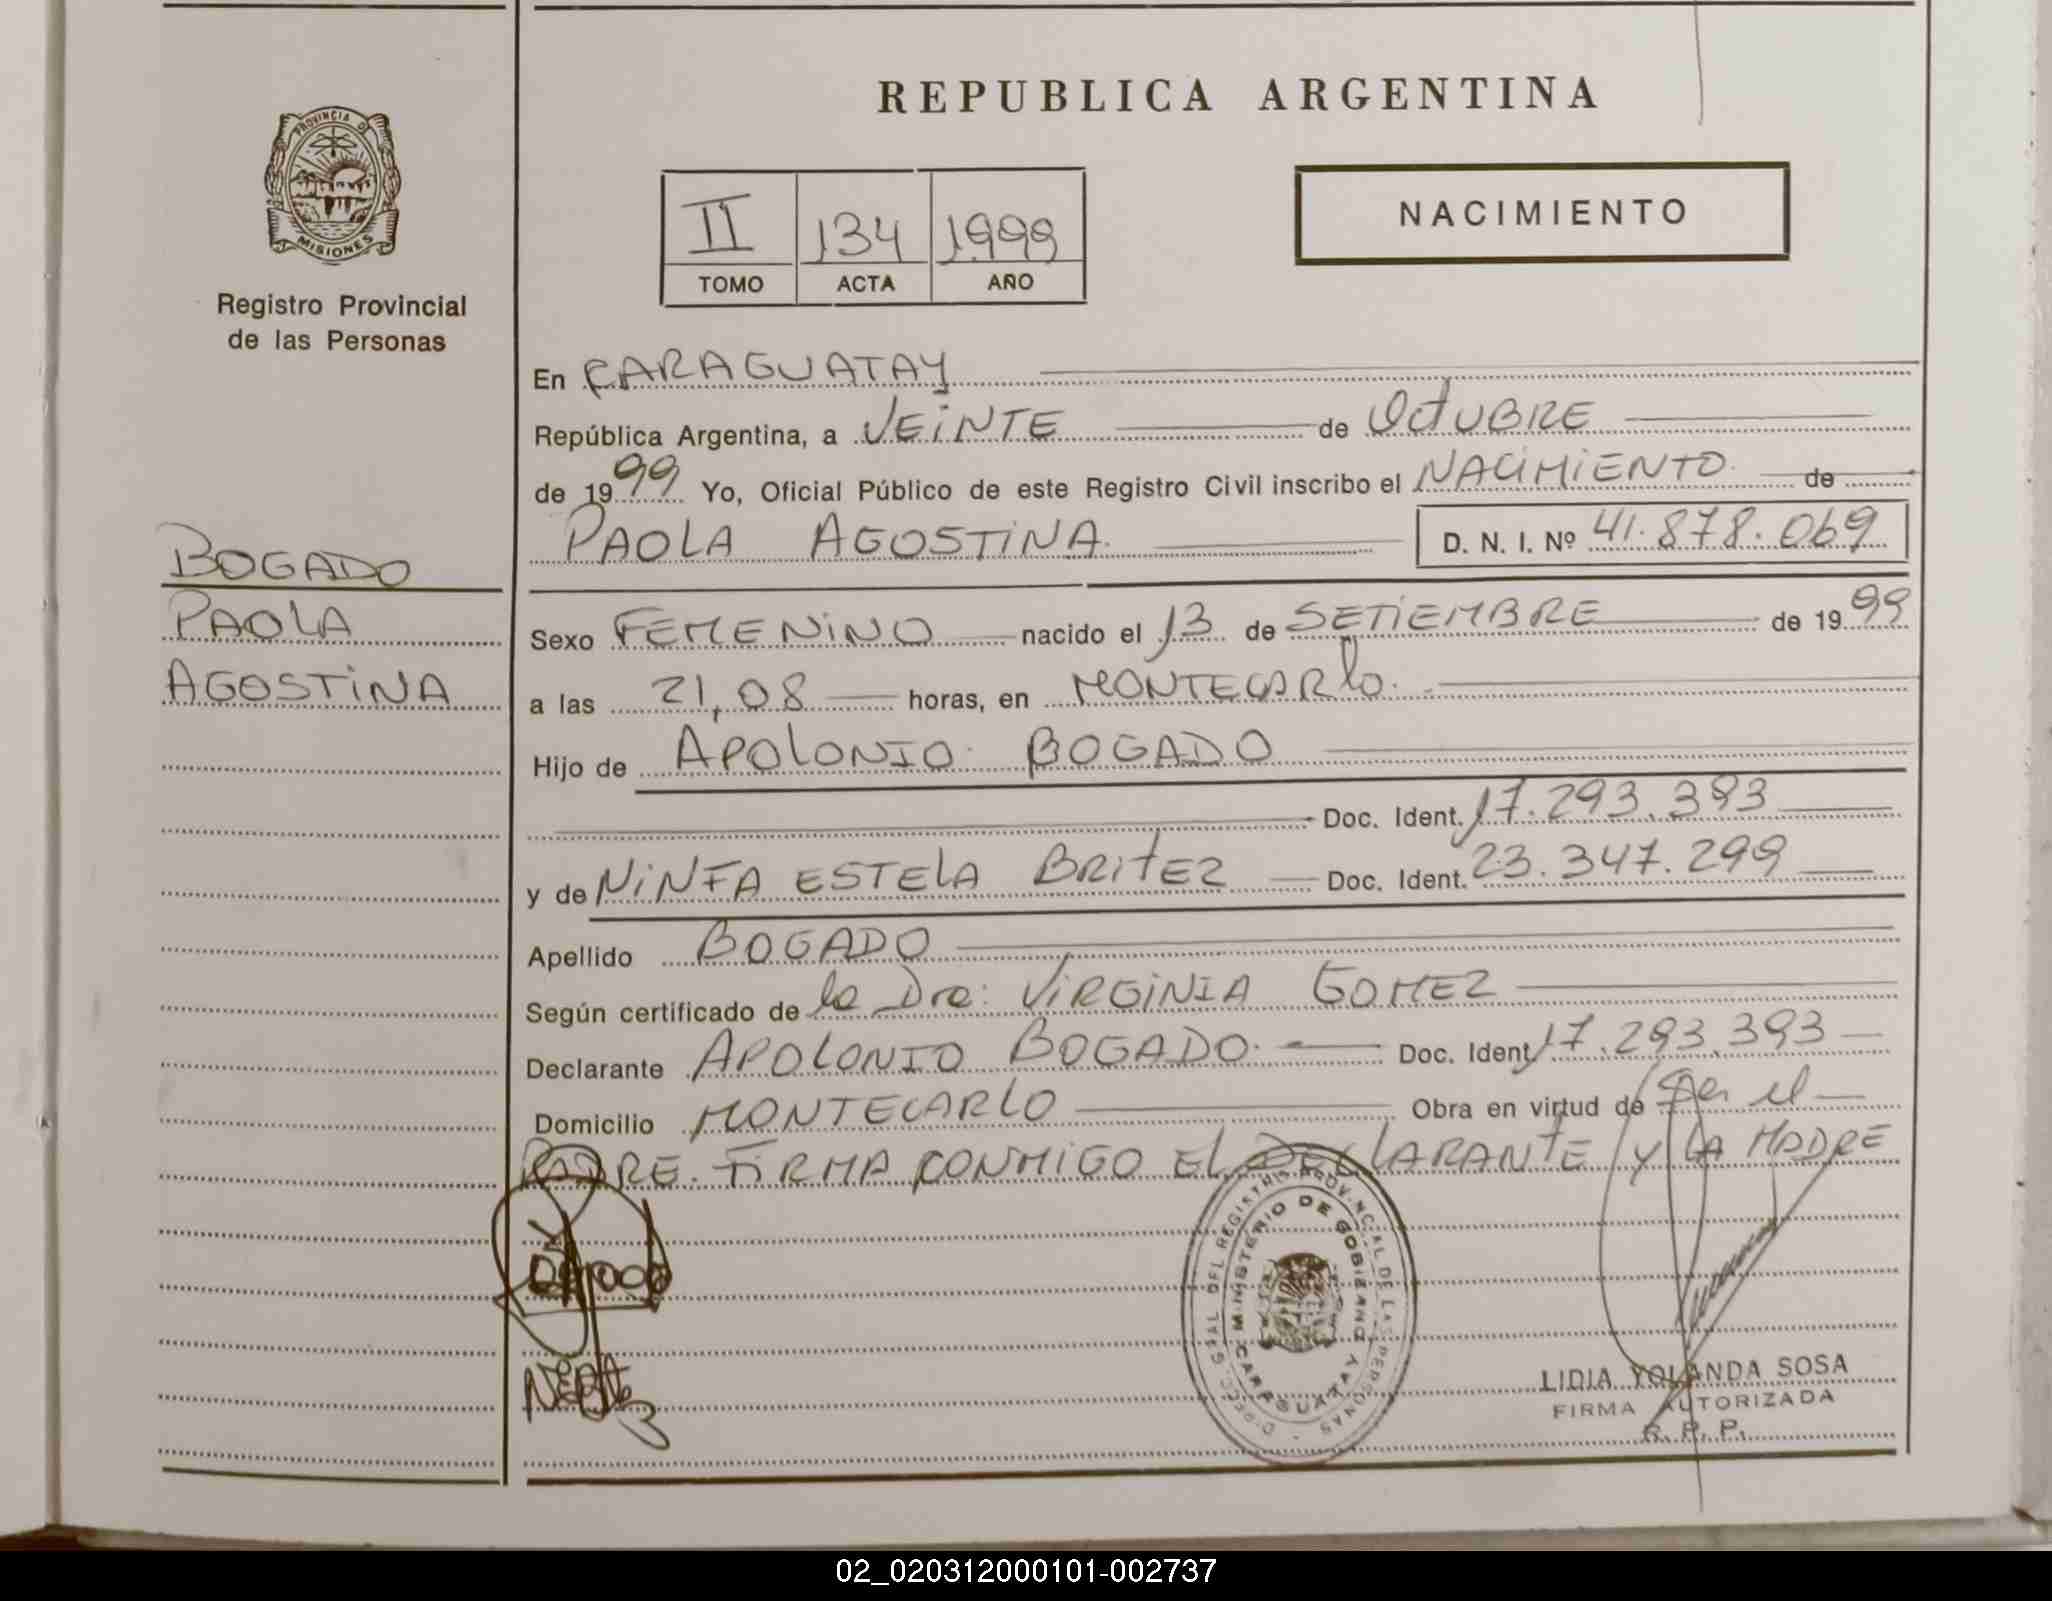 REPUBLICA ARGENTINA
PROVINCIA DE
MISIONES
Registro Provincial
de las Personas
II 134 1999
TOMO ACTA AÑO
NACIMIENTO
En CARAGUATAY
República Argentina, a VEINTE de OCTUBRE
de 1999 Yo, Oficial Público de este Registro Civil inscribo el NACIMIENTO de
PAOLA AGOSTINA D. N. I. Nº 41.878.069
BOGADO
PAOLA
AGOSTINA
Sexo FEMENINO nacido el 13 de SETIEMBRE de 1999
a las 21,08 horas, en MONTECARLO.
Hijo de APOLONIO BOGADO
Doc. Ident. 17.293.393
y de NINFA ESTELA BRITEZ Doc. Ident. 23.347.299
Apellido BOGADO
Según certificado de la Dra: VIRGINIA GOMEZ
Declarante APOLONIO BOGADO Doc. Ident 17.293.393
Domicilio MONTECARLO Obra en virtud de Ser el
PADRE. FIRMA CONMIGO EL DECLARANTE Y LA MADRE
DIRECC. GRAL. DEL REGISTRO PROVINCIAL DE LAS PERSONAS
MINISTERIO DE GOBIERNO
CARAGUATAY
LIDIA YOLANDA SOSA
FIRMA AUTORIZADA
R. P. P.
02_020312000101-002737